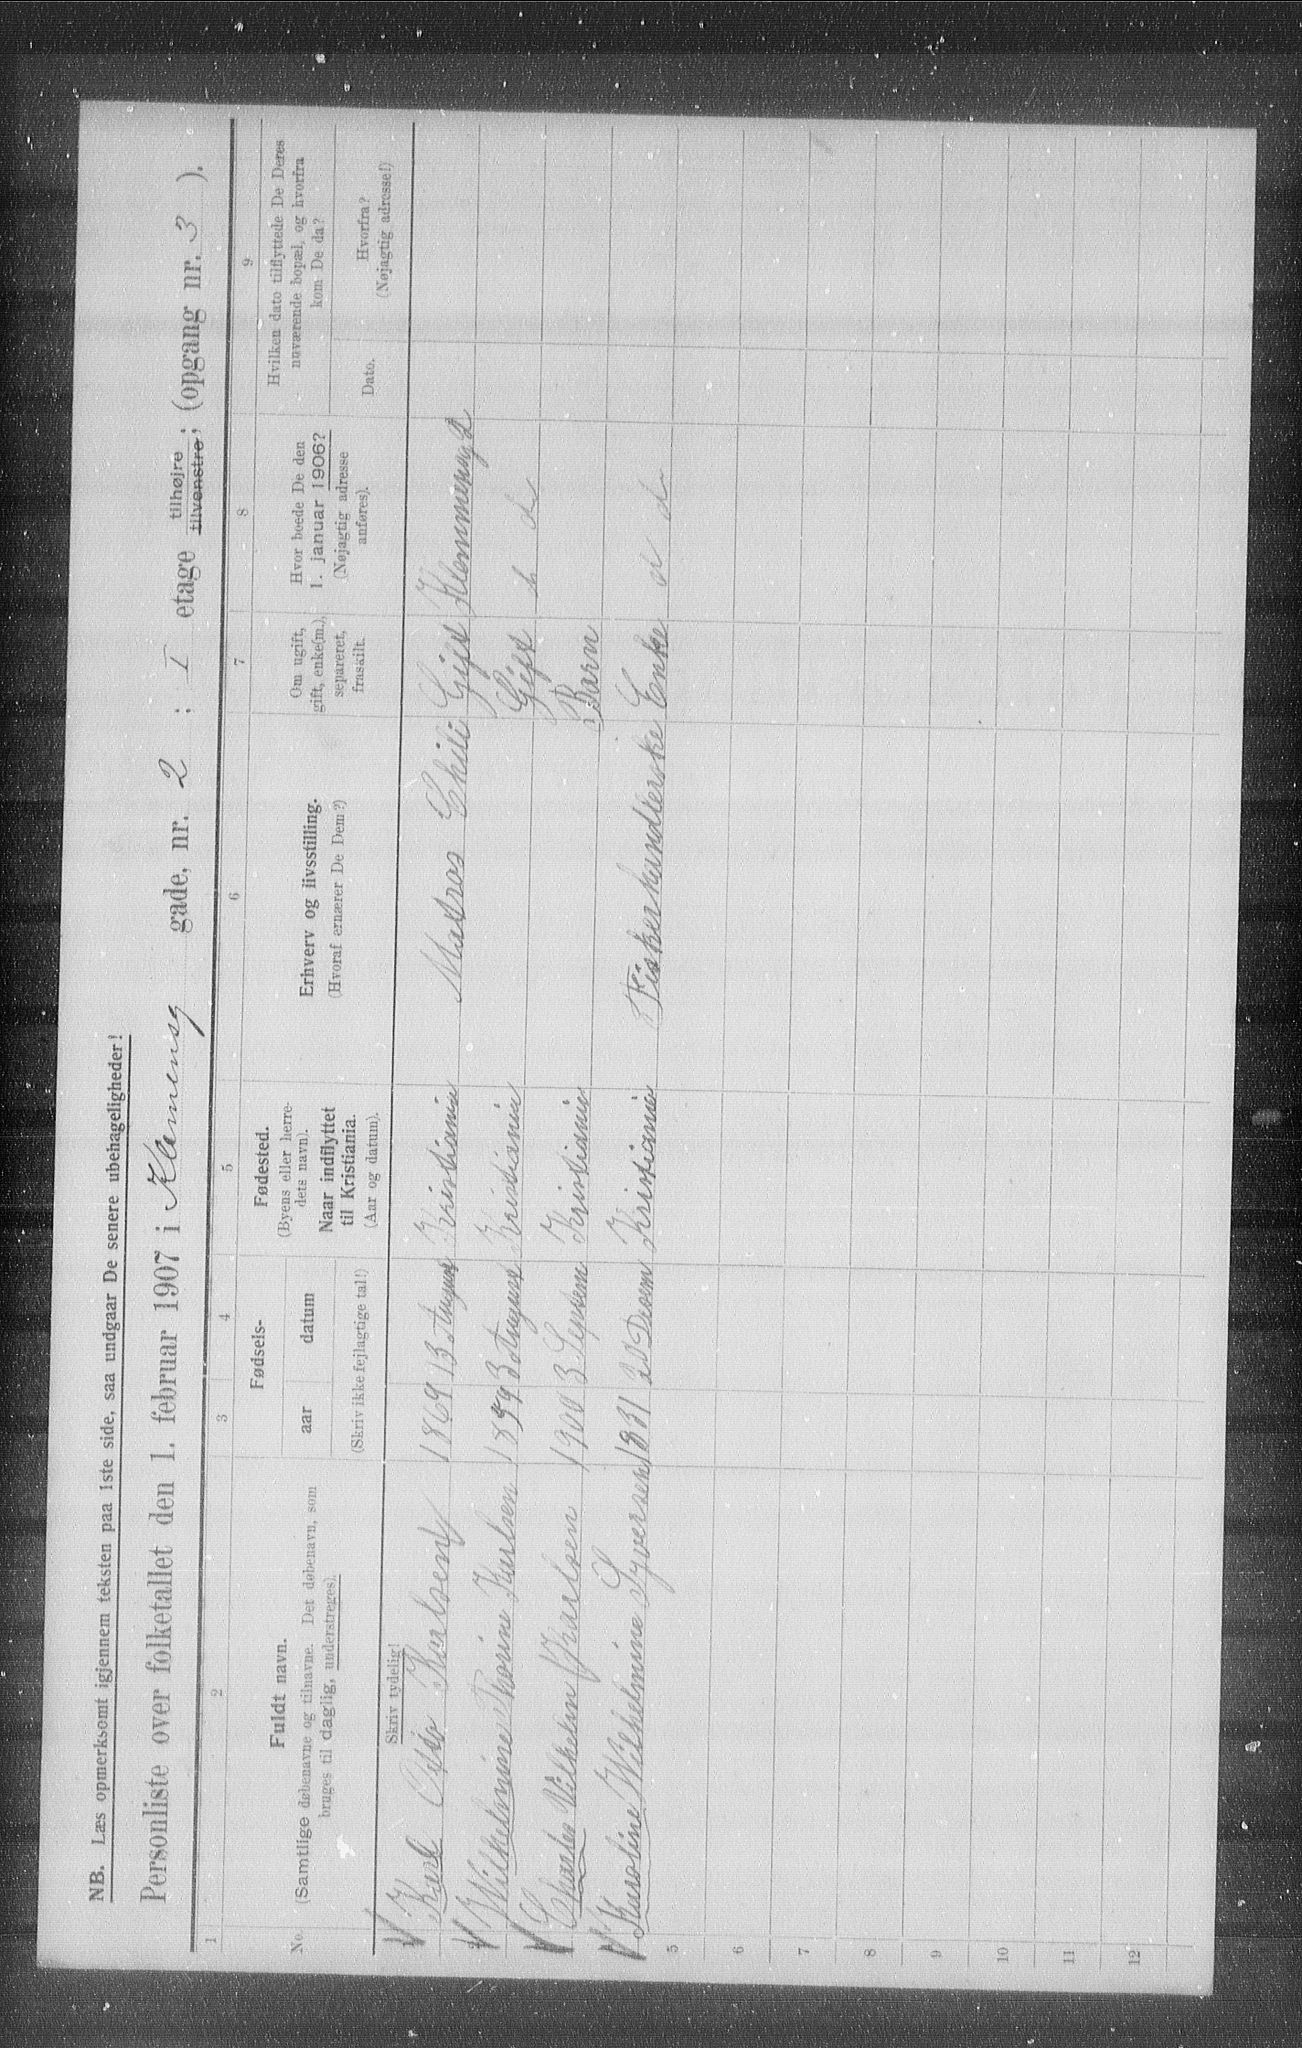 NB. Læs opmerksomt igjennem teksten paa 1ste side, saa undgaar De senere ubehageligheder!
Personliste over folketallet den 1. februar 1907 i Klemensg gade, nr. 2 ; I etage tilhøjre tilvenstre; (opgang nr. 3 ).
1 2 3 4 5 6 7 8 9
No.
Fuldt navn.
(Samtlige døbenavne og tilnavne. Det døbenavn, som
bruges til daglig, understreges).
Fødsels-
aar datum
(Skriv ikke fejlagtige tal!)
Fødested.
(Byens eller herre-
dets navn).
Naar indflyttet
til Kristiania.
(Aar og datum).
Erhverv og livsstilling.
(Hvoraf ernærer De Dem?)
Om ugift,
gift, enke(m.),
separeret,
fraskilt.
Hvor boede De den
1. januar 1906?
(Nøjagtig adresse
anføres).
Hvilken dato tilflyttede De Deres
nuværende bopæl, og hvorfra
kom De da?
Dato.
Hvorfra?
(Nøjagtig adresse!)
Skriv tydelig!
Karl Otto Karlsen 1869 13 August Kristiania Matros Chili Gift Klemmensg 2
Wilhelmine Thorine Karlsen 3 August Kristiania Gift
Charles Vilhelm Karlsen 1900 3 Septem Kristiania Barn
Karoline Wilhelmine Syversen 1831 20 Decem Kristiania Fiskerhandlerske Enke
5
6
7
8
9
10
11
12